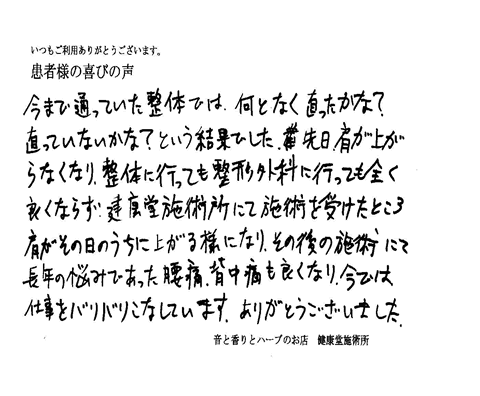 いつもご利用ありがとうございます。
患者様の喜びの声
今まで通っていた整体では、何となく直ったかな?
直っていないかな?という結果でした。先日、肩が上が
らなくなり、整体に行っても整形外科に行っても全く
良くならず、健康堂施術所にて施術を受けたところ
肩がその日のうちに上がる様になり、その後の施術にて
長年の悩みであった腰痛、背中痛も良くなり、今では
仕事をバリバリこなしています。ありがとうございました。
音と香りとハーブのお店 健康堂施術所